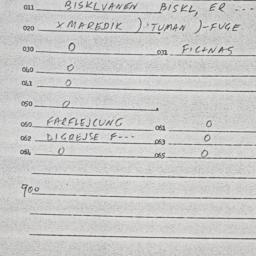 011 BISKLVANEN BISKL, ER ---
020 XMAREDIK ) · TUMAN ) - FUGE
030 0 031 FICHNAS
040 0
041 0
050 0
060 FARFLEJCUNG 061 0
062 DIGDEJSE F--- 063 0
064 0 065 0
900